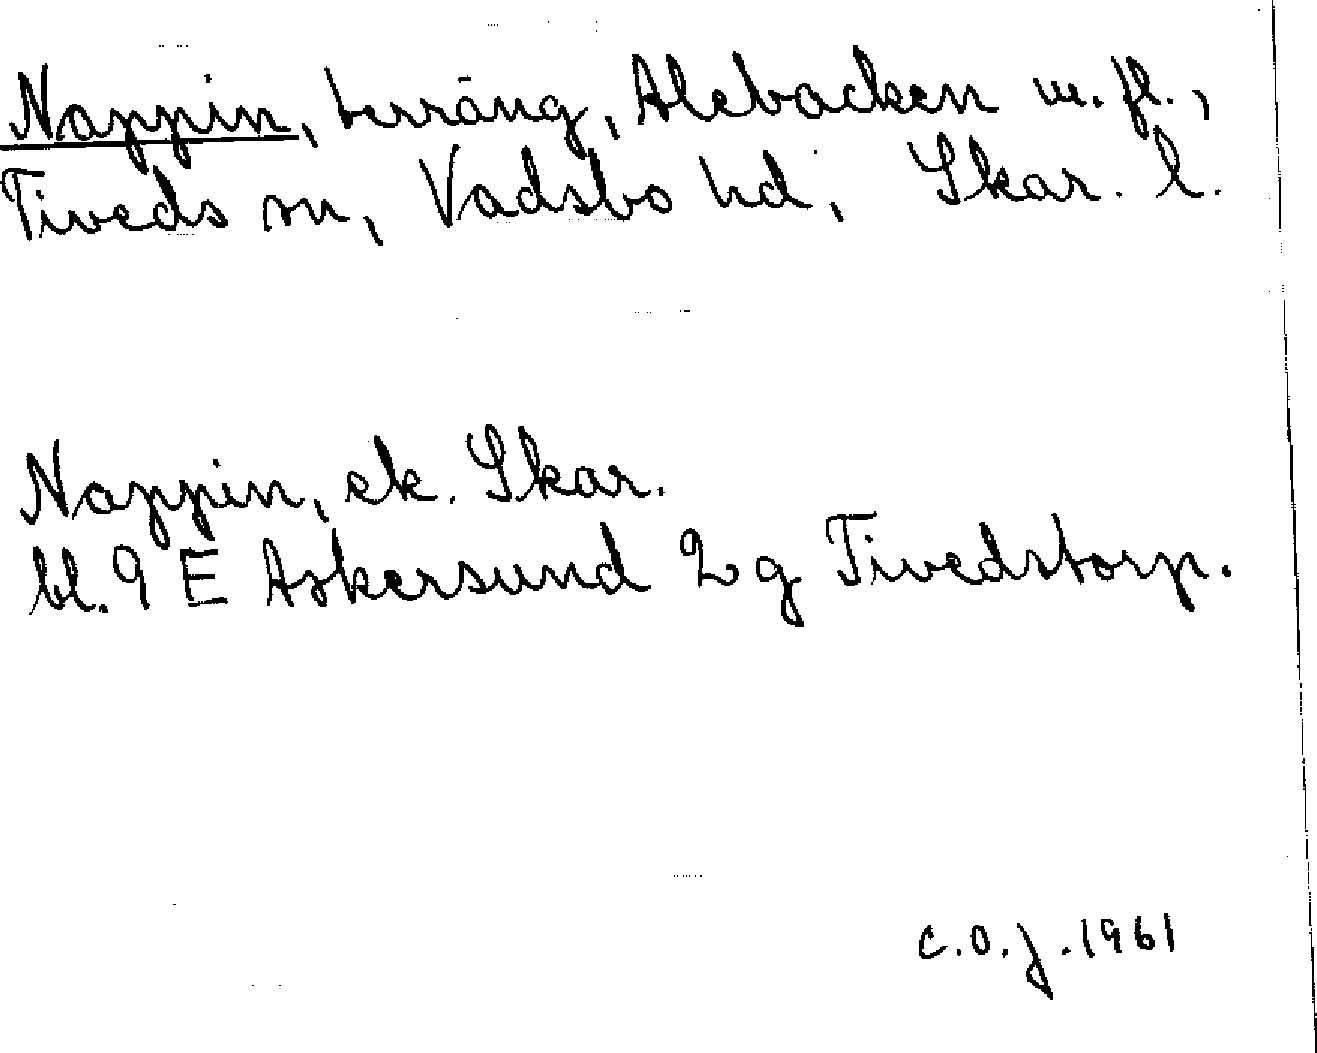 Nappin, terräng, Alebacken m.fl.,
Tiveds sn, Vadsbo hd, Skar. l.
Nappin, ek. Skar.
bl. 9 E Askersund 2 g Tivedstorp.
C.O.J. 1961